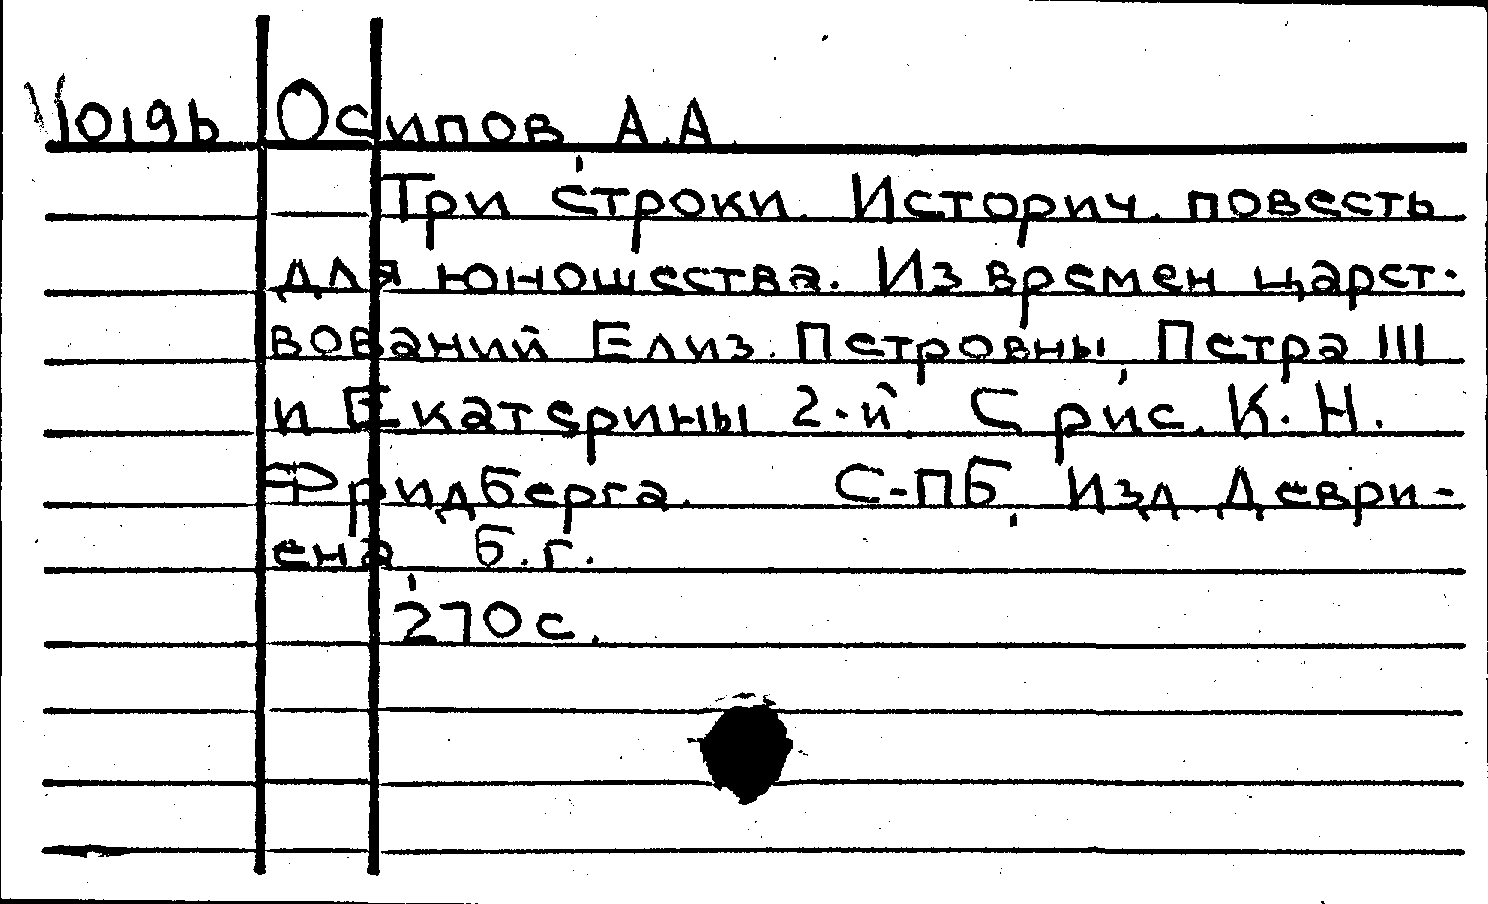 1019b Осипов А.А.
Три строки. Историч. повесть
для юношества. Из времен царст-
вований Елиз. Петровны, Петра III
и Екатерины 2-й. С рис. К. Н.
Фридберга. С-ПБ, Изд. Деври-
ена, б.г.
270 с.